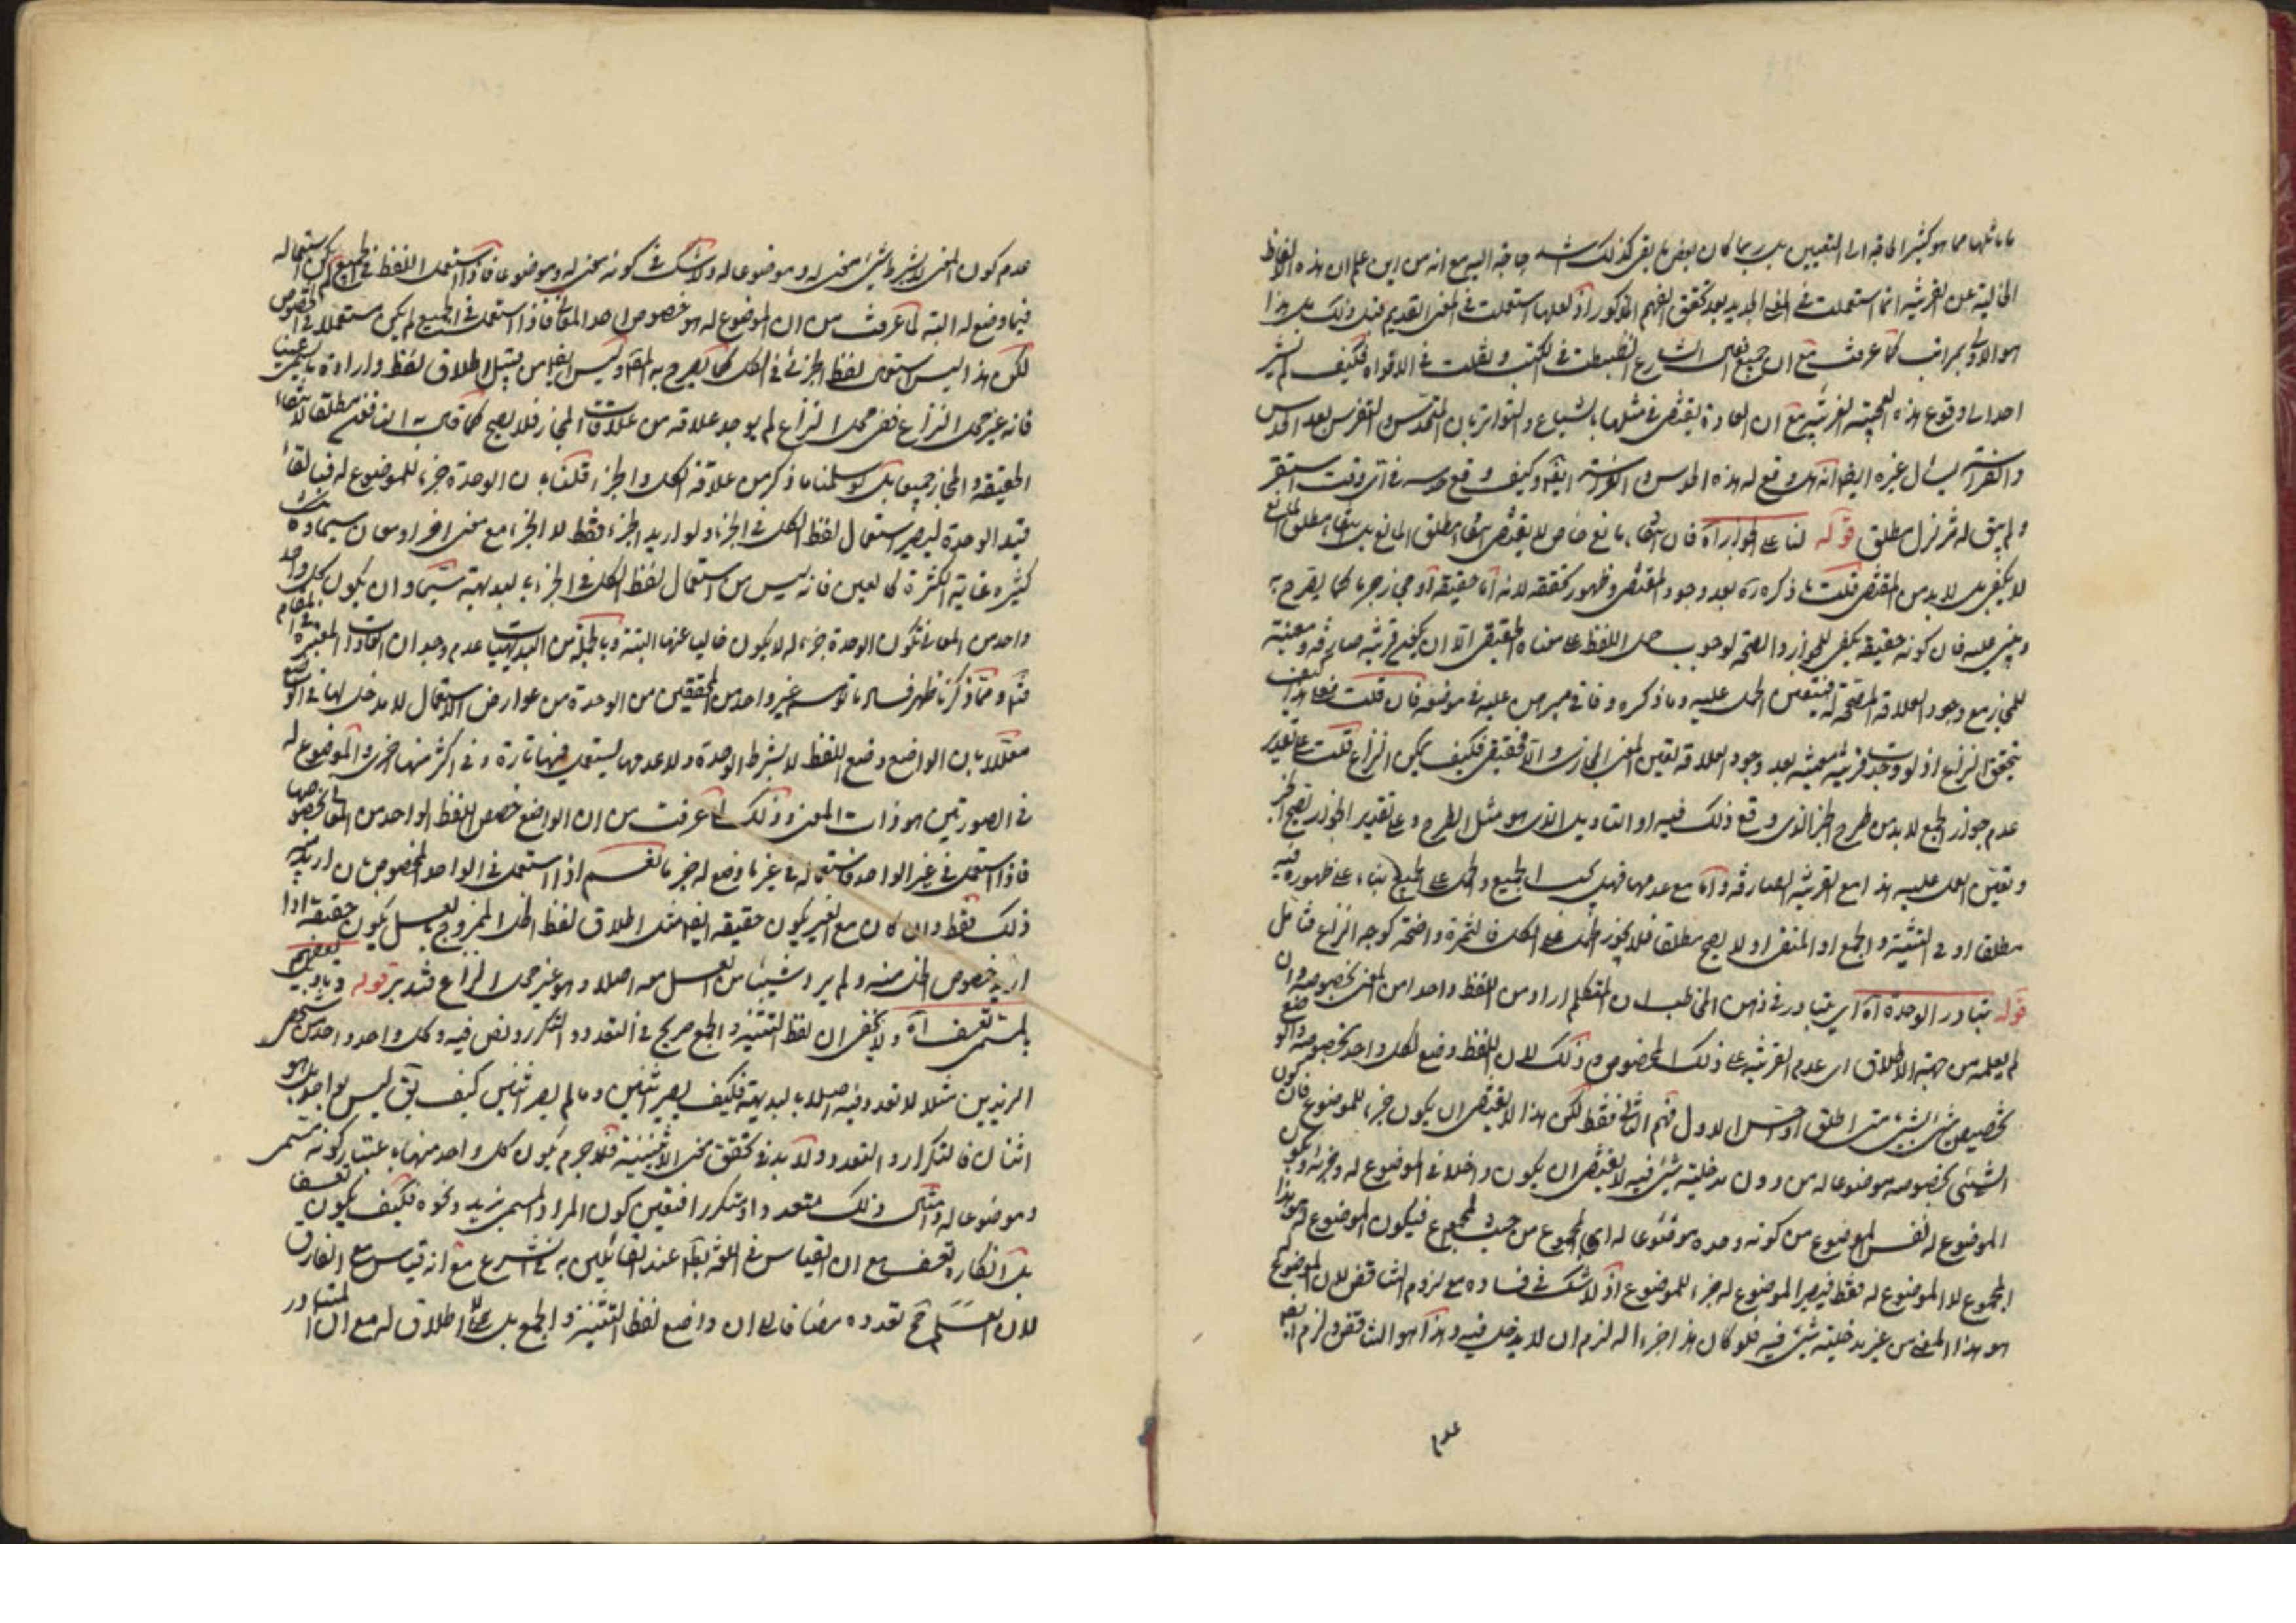 ما ماثلها مما هو كثير الحاجة الى التعيين بل ربما كان بعض ما بقى كذلك اشد حاجة اليه مع انه من اين علم ان هذه الالفاظ
الخالية عن القرينة انما استعملت في المعنى الجديد بعد تحقق الفهم المذكور اذ لعلها استعملت في المعنى القديم قبل ذلك بل هذا
هو الاولى بمراتب كما عرفت مع ان جميع الشارع انضبطت في الكتب ونقلت في الافواه فكيف لم يشر
احد الى وقوع هذه الغريبة مع ان العادة يقتضى في مثلها بالشياع والتواتر بان المتحدس والتفرس بعد الحدس
والفراسة يسأل غيره ايضا انه هل وقع له هذه الحدس والفراسة ايضا وكيف وقع وفي اى وقت استقر
ولم يبق له تزلزل مطلق قوله لنا على الجواز اه فان انتفاء مانع خاص لا يقتضى انتفاء مطلق المانع بل انتفاء مطلق المانع
لا يكفى بل لا بد من المقتضى قلت ما ذكره ره بعد وجود المقتضى وظهور تحققه لانه اما حقيقة او مجاز جزما كما يصرح به
ويبنى عليه فان كونه حقيقة يكفى للجواز والصحة لوجوب حمل اللفظ على معناه الحقيقى الا ان يكون قرينة صارفة ومعينة
للمجاز مع وجود العلاقة المصححة له فيتعين الحمل عليه وما ذكره وفاقى مبرهن عليه في موضعه فان قلت فعلى هذا كيف
يتحقق النزاع اذ لو وجدت قرينة معينة بعد وجود العلاقة لتعين المعنى المجازى والا فحقيقى فكيف يمكن النزاع قلت على تقدير
عدم جواز الجمع لا بد من طرح الخبر الذى وقع ذلك فيه او التاويل الذى هو مثل الطرح وعلى تقدير الجواز يصح الخبر
وتعين العمل عليه هذا مع القرينة الصارفة واما مع عدمها فهل الجميع والحمل على الجميع بناء على ظهوره فيه
مطلقا او في التثنية والجمع او المنفى او لا يصح مطلقا فلا يجوز الحمل على الكل فالثمرة واضحة كوجه النزاع فتامل
قوله بتبادر الوحدة اه اى يتبادر في ذهن المخاطب ان المتكلم اراد من اللفظ واحدا من المعنى بخصوصه وان
لم يعلمه من جهة الاطلاق اى عدم القرينة على ذلك الخصوص وذلك لان اللفظ وضع لكل واحد بخصوصه والوضع
تخصيص شئ بشئ متى اطلق او احس الاول فهم الثانى فقط لكن هذا لا يقتضى ان يكون جزء للموضوع فان كون
الشئ بخصوصه موضوعا له من دون مدخلية شئ فيه لا يقتضى ان يكون داخلا في الموضوع له وجزئه ويكون
الموضوع له نفس الموضوع من كونه وحده موضوعا له اى المجموع من حيث المجموع فيكون الموضوع له هو هذا
المجموع لا الموضوع له فقط فيصير الموضوع له جزء للموضوع اذ لا شك في فساده مع لزوم التناقض لان الموضوع له
هو هذا المعنى من غير مدخلية شئ فيه فلو كان هذا جزءا له لزم ان لا يدخل فيه وهذا هو التناقض ولزم ايضا
عدم
عدم كون المعنى لا بشرط شئ معنى له وموضوعا له ولا شك في كونه معنى له وموضوعا فاذا استعمل اللفظ في الجميع لم يكن استعماله
فيما وضع له البتة لما عرفت من ان الموضوع له هو خصوص احد المعانى فاذا استعمل في الجميع لم يكن مستعملا في الخصوص
لكن هذا ليس استعمال لفظ الجزئى في الكل كما يصرح به المصنف وليس ايضا من قبيل اطلاق لفظ وارادة ما يعنينا
فانه غير محل النزاع ففى محل النزاع لم يوجد علاقة من علاقات المجاز فلا يصح كما قال النافى مطلقا لانتفاء
الحقيقة والمجاز جميعا بل لو سلمنا ما ذكر من علاقة الكل والجزء وقلنا بان الوحدة جزء للموضوع له فبالقاء
قيد الوحدة ليصير استعمال لفظ الكل في الجزء ولو اريد الجزء فقط لا الجزء مع معنى اخر او معان سيما وهذه
كثيره غاية الكثرة كالعين فانه ليس من استعمال لفظ الكل في الجزء بالبديهة سيما وان يكون كل واحد
واحد من المعانى تكون الوحدة جزء له لا يكون خاليا عنها البتة وبالجملة من البديهيات عدم وجدان العلاقات المعتبرة في المقام
فتم ومما ذكرنا ظهر فساد ما توهم غير واحد من المحققين من الوحدة من عوارض الاستعمال لا مدخل لها في الوضع
معللا بان الواضع وضع اللفظ لا بشرط الوحدة ولا عدمها ليستعمل فيها تارة وفي اكثر منها اخرى والموضوع له
في الصورتين هو ذات المعنى وذلك لما عرفت من ان الواضع خصص اللفظ الواحد من المعانى بخصوصها
فاذا استعمل في غير الواحد فاستعماله في غير ما وضع له جزما نعم اذا استعمل في الواحد المخصوص بان اريد به
ذلك فقط وان كان مع الغير يكون حقيقة ايضا مثل اطلاق لفظ الخل الممزوج بالعسل يكون حقيقة اذا
اريد خصوص الخل منه ولم يرد شيئا من العسل معه اصلا وهو غير محل النزاع فتدبر قوله وتاويل بعضهم
بالمسمى تعسف اه ولا يخفى ان لفظ التثنية والجمع صريح في التعدد والتكرر ونص فيه وكل واحد واحد متشخص
الزيدين مثلا لا تعدد فيه اصلا بالبديهة فكيف يصير اثنين وما لم يصر اثنين كيف يق ليس بواحد بل هو
اثنان فالتكرار والتعدد لا بد في تحقق معنى الاثنينية فلا جرم يكون كل واحد منها باعتبار كونه مسمى
وموضوعا له وامثال ذلك متعددا ومتكررا فتعين كون المراد المسمى بزيد ونحوه فكيف يكون تعسفا
بل انكاره تعسف مع ان القياس في اللغة بط عند القائلين به في الشرع مع انه قياس مع الفارق
لان العلم مح تعدده مضافا الى ان واضع لفظ التثنية والجمع بل اطلاق له مع ان المتبادر